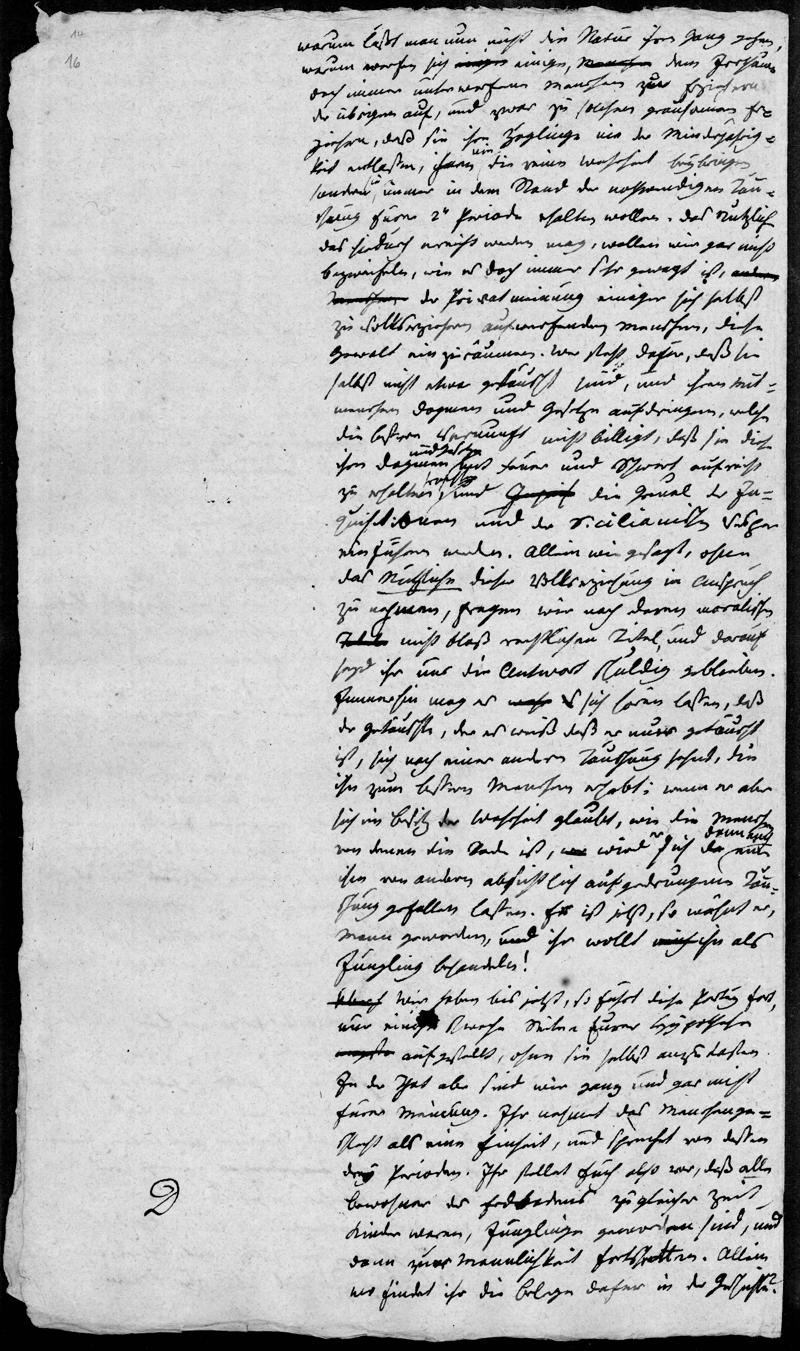 14
16
warum läßt man nun nicht die Natur ihren Gang gehen,
warum werfen sich einige, dem Irrthum
doch immer unterworfene Menschen zur Erziehern
der übrigen auf, und zwar zu solchen grausamen Er=
ziehern, daß sie ihre Zöglinge nie der Minderjährig=
keit entlassen, nie die reine Wahrheit beybringen
sondern immer in dem Stand der nothwendigen Täu=
schung Eurer 2n Periode erhalten wollen. Das Nützliche
das hiedurch erreicht werden mag, wollen wir gar nicht
bezweifeln, wie es doch immer sehr gewagt ist,
der Privatmeinung einiger sich selbst
zu Volkserziehern aufwerfenden Menschen, diese
Gewalt einzuräumen. Wer steht dafür, daß sie
selbst nicht etwa getäuscht sind, und ihren Mit=
menschen Dogmen und Gesetze aufdringen, welche
die bessere Vernunft nicht billigt, daß sie diese
ihre Dogmen mit Feuer und Schwert aufrecht
zu erhalten, und die Greuel der In=
quisitionen und der Sicilianischen Vesper
einführen werden. Allein wie gesagt, ohne
das Nützliche dieser Volkserziehung in Anspruch
zu nehmen, fragen wir nach deren moralischen
nicht bloß rechtlichen Titel, und darauf
seyd ihr uns die Antwort schuldig geblieben.
Immerhin mag es sich hören lassen, daß
der getäuschte, der es weiß daß er nur getäuscht
ist, sich nach einer andern Täuschung sehnt, die
ihn zum bessern Menschen erhebt; wenn er aber
sich im Besitz der Wahrheit glaubt, wie die Mensch
von denen die Rede ist, wird er sich denn auch
ihm von andern absichtlich aufgedrungene Täu=
schung gefallen lassen. Er ist jetzt, so wähnt er,
Mann geworden, und ihr wollt ihn als
Jüngling behandeln!
Wir haben bis jetzt, so fährt diese Parthey fort,
nur einige schwache Seiten Eurer Hypothese
aufgestellt, ohne sie selbst anzutasten.
In der That aber sind wir ganz und gar nicht
Eurer Meinung. Ihr nehmet das Menschenge=
schlecht als eine Einheit, und sprechet von dessen
drey Perioden. Ihr stellet Euch also vor, daß alle
Bewohner des Erdbodens zu gleicher Zeit
Kinder waren, Jünglinge geworden sind, und
dann zur Mannlichkeit fortschritten. Allein
wo findet ihr die Belege dafür in der Geschichte?
D